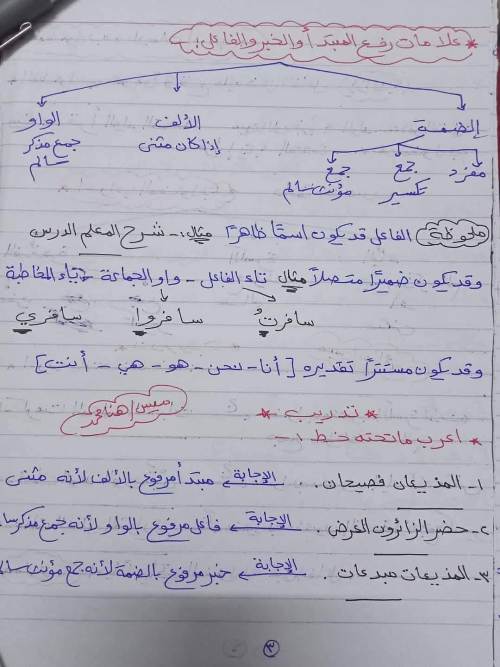 * علامات رفع المبتدأ أو الخبر والفاعل:
الضمة الألف الواو
مفرد جمع تكسير جمع مؤنث سالم إذا كان مثنى جمع مذكر سالم
ملحوظة الفاعل قد يكون اسمًا ظاهرًا مثال:- شرح المعلم الدرس
وقد يكون ضميرًا متصلاً مثال تاء الفاعل - واو الجماعة - ياء المخاطبة
سافرتُ سافروا سافري
وقد يكون مستترًا تقديره [أنا - نحن - هو - هي - أنت]
* تدريب *
ميس/هنا محمد
اعرب ما تحته خط :-
١- المذيعان فصيحان. الإجابة مبتدأ مرفوع بالألف لأنه مثنى
٢- حضر الزائرون العرض. الإجابة فاعل مرفوع بالواو لأنه جمع مذكر سا
٣- المذيعات مبدعات. الإجابة خبر مرفوع بالضمة لأنه جمع مؤنث سال
٣